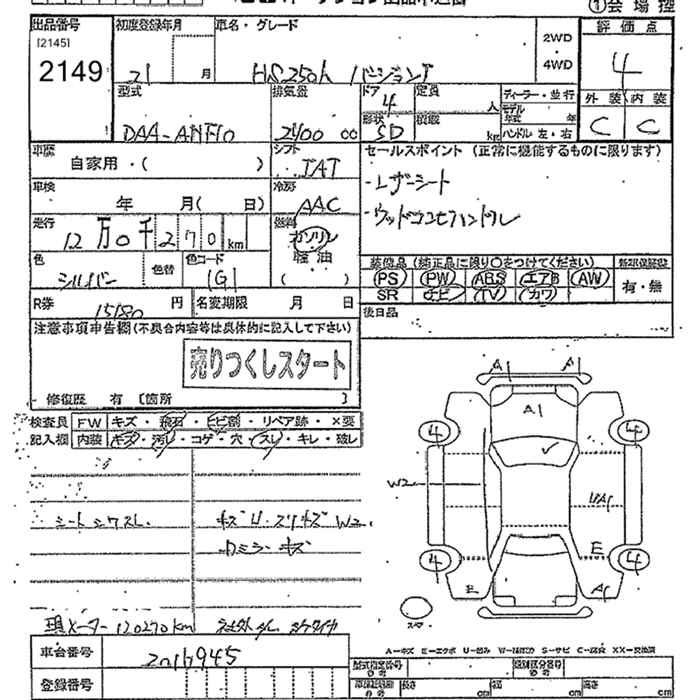 ①会場控
出品番号
[2145]
2149
初度登録年月
21 月
車名・グレード
HS250h バージョン
2WD
・
4WD
評価点
4
外装 内装
C C
型式
DAA-ANF10
排気量
2400 00
ドア
4
形状
SD
定員
人
積載
kg
ディーラー・並行
モデル年式 年
ハンドル 左・右
車歴
自家用・( )
シフト
IAT
セールスポイント (正常に機能するものに限ります)
・レザーシート
・ウッドコンビハンドル
車検
年 月( 日)
冷房
AAC
走行
12万0千270km
燃料
ガソリン
軽油
( )
色
シルバー
色替
色コード
1G1
装備品 (純正品に限り○をつけてください)
PS PW ABS エアB AW
SR ナビ TV カワ
新車保証書
有・無
R券
15180 円
名変期限 月 日
後日品
注意事項申告欄 (不具合内容等は具体的に記入して下さい)
売りつくしスタート
・修復歴 有 [箇所 ]
検査員
記入欄
FW キズ・飛石・ヒビ割・リペア跡・×要
内装 キズ・汚れ・コゲ・穴・スレ・キレ・破レ
シートシワスレ
キズU.スリキズW2.
カミラーキズ
現メーター120270km
車台番号
2016945
登録番号
A1 A1
A1
4 4
W2
UA1
E
4 4
E A1
スペア
A-キズ E-エクボ U-凹み W-補修跡 S-サビ C-腐食 XX-交換済
型式指定番号
類別区分番号
長さ cm 幅 cm 高さ cm